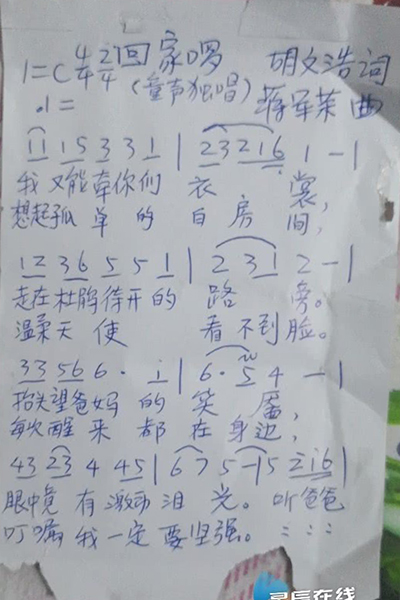 1=C 4/4 2/4 回家啰 胡文浩词
.1= (童声独唱) 蒋军荣曲
11 15 3 3 1 | 23 216 1 - |
我又能牵你们 衣 裳,
想起孤单的白房间,
12 36 5 5 1 | 2 31 2 - |
走在杜鹃待开的 路 旁。
温柔天使 看不到脸。
33 56 6 · i | 6 · 5 4 - |
抬头望爸妈的笑靥,
每次醒来都在身边,
43 23 4 45 | 6 7 5 - 15 216 |
眼中竟有激动泪光。听爸爸
叮嘱我一定要坚强。: : :
星辰在线